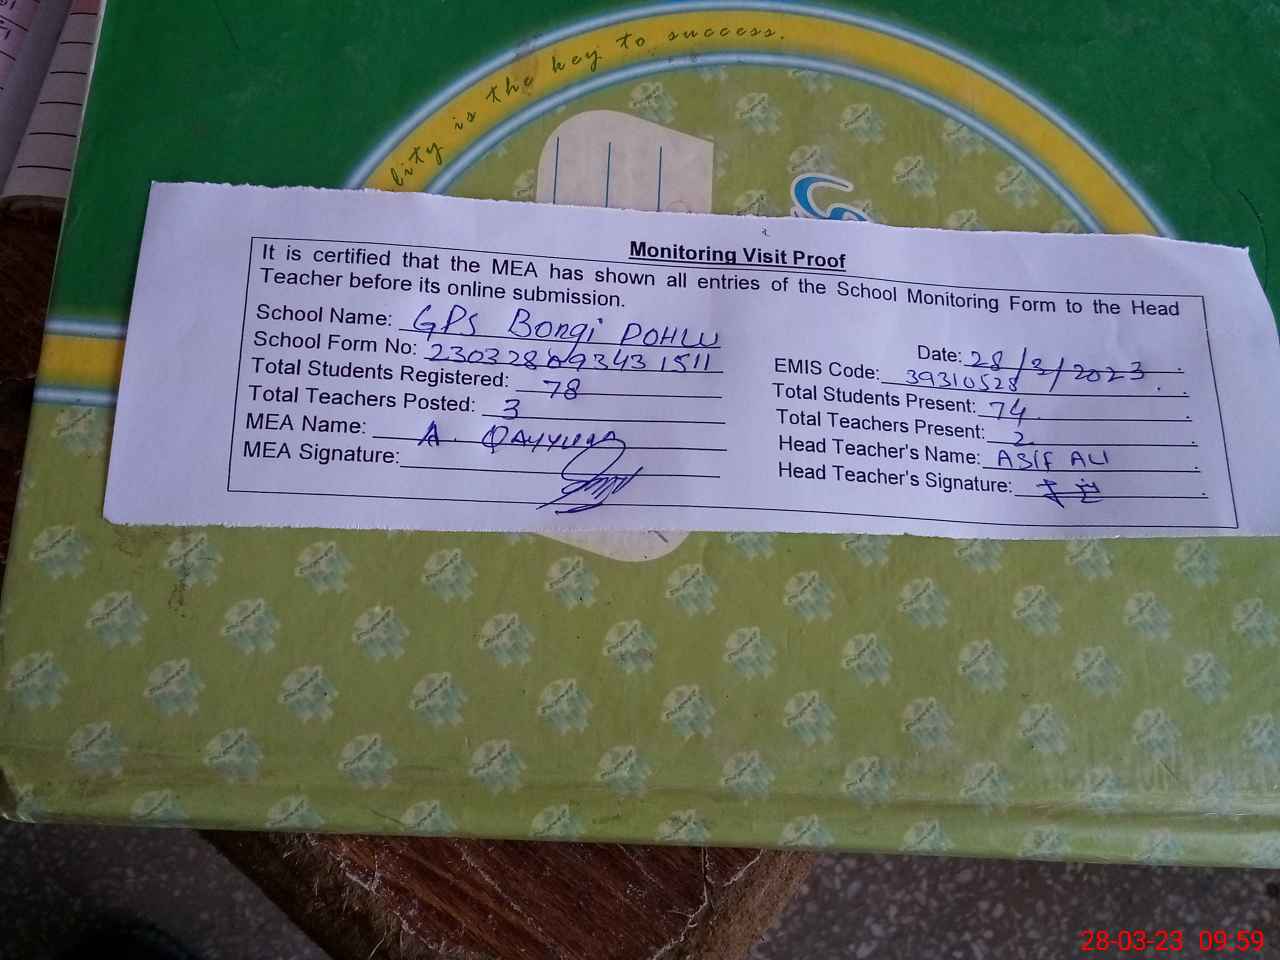 lity is the key to success.
Monitoring Visit Proof
It is certified that the MEA has shown all entries of the School Monitoring Form to the Head
Teacher before its online submission.
School Name: GPS Bongi POHLU
Date: 28/3/2023
School Form No: 230328093431511
EMIS Code: 39310528
Total Students Registered: 78
Total Students Present: 74
Total Teachers Posted: 3
Total Teachers Present: 2
MEA Name: A. QAYYUM
Head Teacher's Name: ASIF ALI
MEA Signature:
Head Teacher's Signature:
28-03-23 09:59